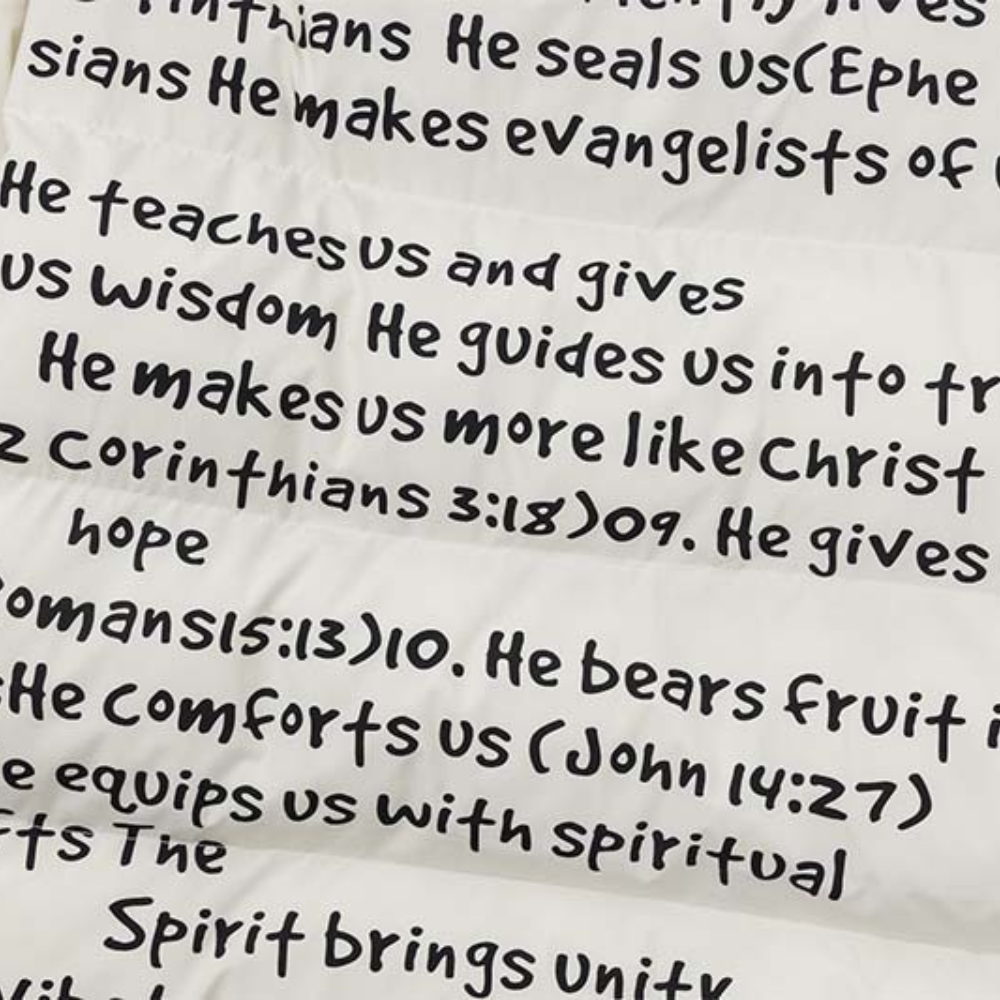 rinthians He seals us(Ephe
sians He makes evangelists of
He teaches us and gives
us wisdom He guides us into tr
He makes us more like Christ
2 Corinthians 3:18)09. He gives
hope
omans15:13)10. He bears fruit i
He comforts us (John 14:27)
e equips us with spiritual
fts The
Spirit brings unity